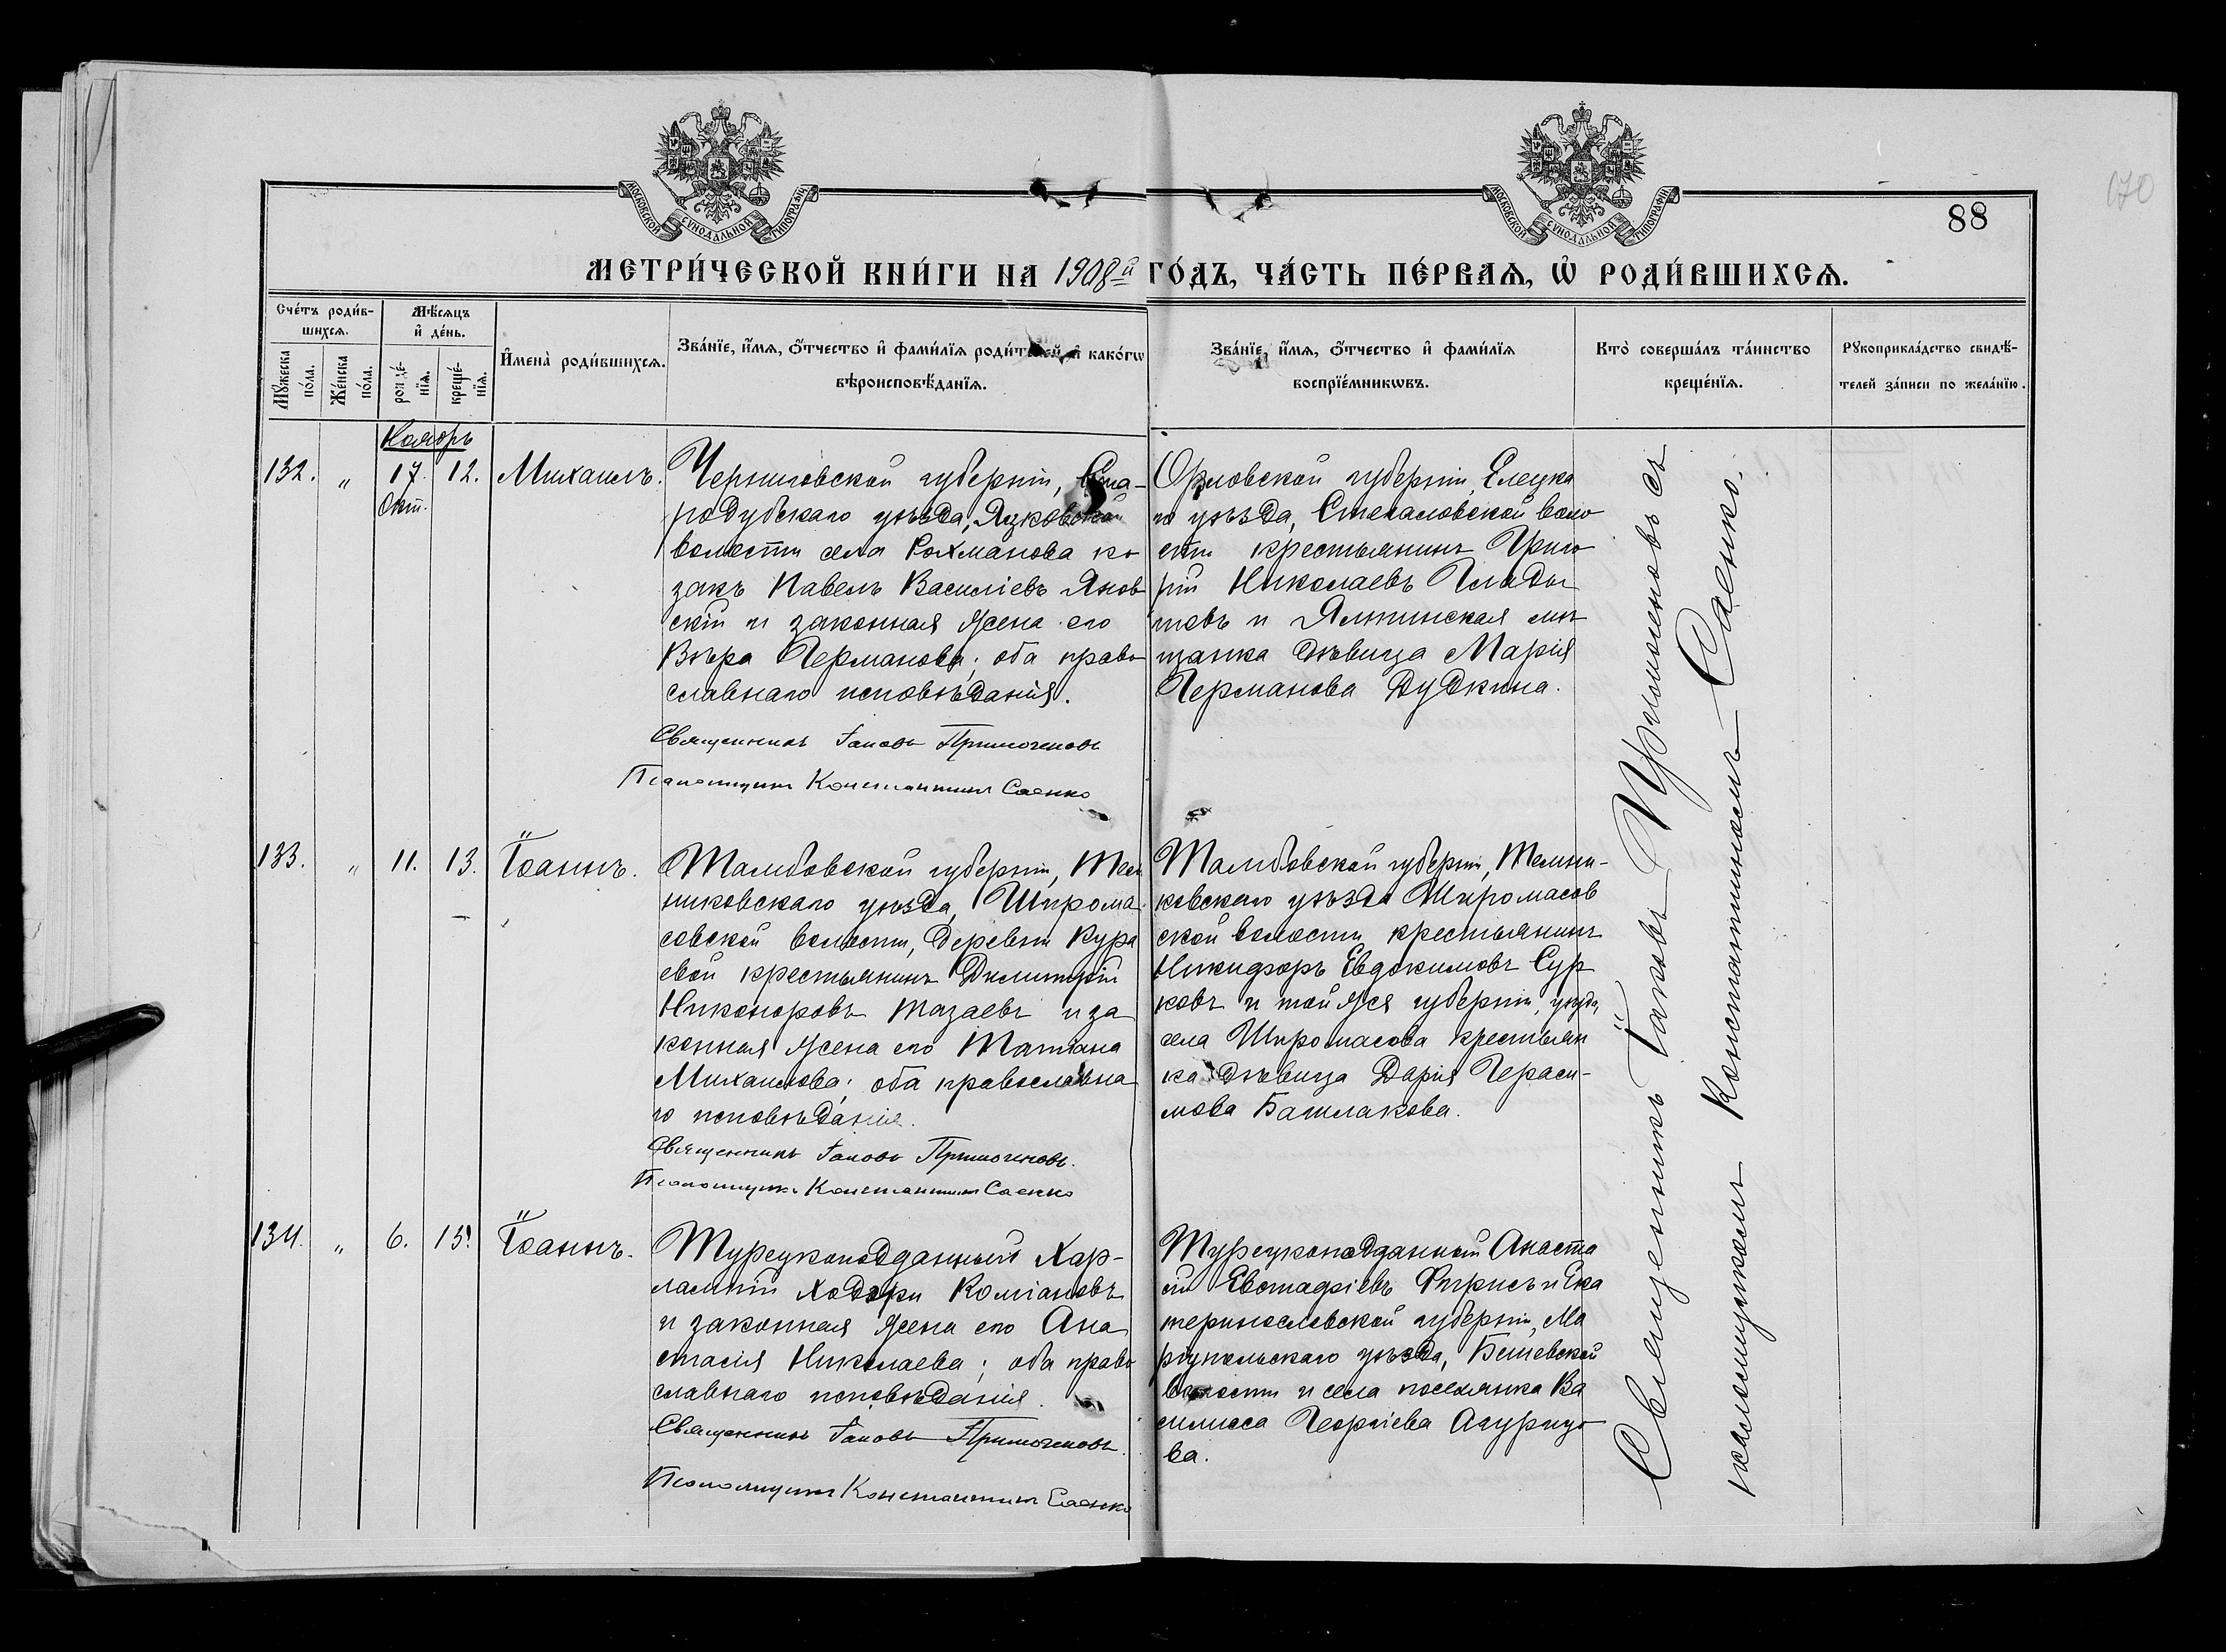 МОСКОВСКОЙ СУНОДАЛЬНОЙ ТИПОГРАФІИ
МОСКОВСКОЙ СУНОДАЛЬНОЙ ТИПОГРАФІИ
88
170
МЕТРИ́ЧЕСКОЙ КНИ́ГИ НА 1908й ГО́ДЪ, ЧА́СТЬ ПЕ́РВАѦ, Ѡ РОДИ́ВШИХСѦ.
Сче́тъ роди́в-
шихсѧ.
Мѣ́сѧцъ
и҆ де́нь.
Мꙋ́жеска по́ла.
Же́нска по́ла.
рожде́-
нїѧ.
креще́-
нїѧ.
И҆мена̀ роди́вшихсѧ.
Зва́нїе, и҆́мѧ, ѻ҆́тчество и҆ фами́лїѧ роди́телей, и҆ како́гѡ
вѣроисповѣ́данїѧ.
Зва́нїе, и҆́мѧ, ѻ҆́тчество и҆ фами́лїѧ
воспрїе́мникѡвъ.
Кто̀ соверша́лъ та́инство
креще́нїѧ.
Рꙋкоприкла́дство свидѣ́-
телей за́писи по жела́нїю.
Ноябрь
132. " 17. 12. Михаилъ.
Окт.
Черниговской губерніи, Ста-
родубскаго уѣзда, Язковской
волости села Рохманова ко
закъ Павелъ Василіевъ Янов
скій и законная жена его
Вѣра Германова; оба право
славнаго исповѣданія.
Священникъ Іаковъ Примоченовъ
Псаломщикъ Константинъ Саенко
Орловской губерніи, Елецка
го уѣзда, Стегаловской воло
сти крестьянинъ Григо
рій Николаевъ Глады
шевъ и Ялтинская мѣ
щанка дѣвица Марія
Германова Дудкина.
133. " 11. 13. Іоаннъ.
Тамбовской губерніи, Тем
никовскаго уѣзда, Широма
совской волости, деревни Кура
евой крестьянинъ Димитрій
Никоноровъ Мазаевъ и за
конная жена его Татіана
Михаилова; оба православна
го исповѣданія.
Священникъ Іаковъ Примоченовъ.
Псаломщикъ Константинъ Саенко
Тамбовской губерніи, Темни-
ковскаго уѣзда Широмасов
ской волости крестьянинъ
Никифоръ Евдокимовъ Сур
ковъ и той же губерніи, уѣзда,
села Широмасова крестьян
ка дѣвица Дарія Гераси-
мова Башлакова.
134. " 6. 15. Іоаннъ.
Турецкоподданный Хар-
лампій Ходжи Коміановъ
и законная жена его Ана
стасія Николаева; оба право
славнаго исповѣданія.
Священникъ Іаковъ Примоченовъ.
Псаломщикъ Константинъ Саенко
Турецкоподданный Анаста
сій Евстафіевъ Фирисъ и Ека
теринославской губерніи, Ма
ріупольскаго уѣзда, Бешевской
волости и села поселянка Ва
силисса Георгіева Агурицо
ва.
Священникъ Іаковъ Примоченовъ съ
псаломщикомъ Константиномъ Саенко.